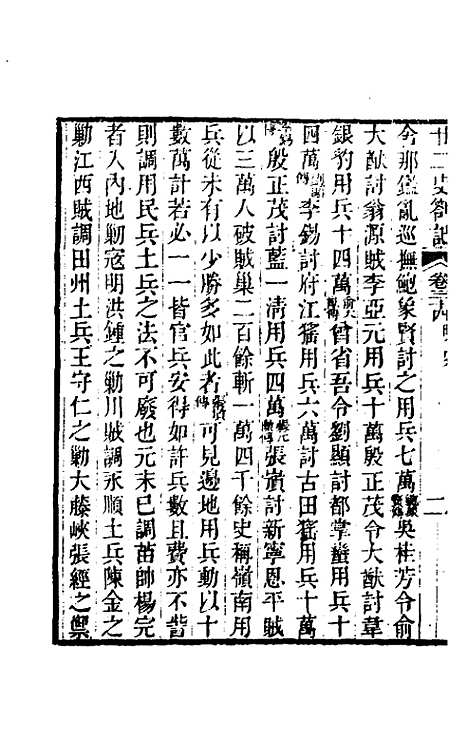 廿二史劄記 卷三十四 明史 二
令那鑑亂巡撫鮑象賢討之用兵七萬吳桂芳令俞
大猷討翁源賊李亞元用兵十萬殷正茂令大猷討韋
銀豹用兵十四萬曾省吾令劉顯討都掌蠻用兵十
四萬李錫討府江猺用兵六萬討古田猺用兵十萬
殷正茂討藍一清用兵四萬張嶺討新寧恩平賊
以三萬人破賊巢二百餘斬一萬四千餘史稱嶺南用
兵從未有以少勝多如此者可見邊地用兵動以十
數萬計若必一一皆官兵安得如許兵數且費亦不貲
則調用民兵土兵之法不可廢也元末已調苗帥楊完
者入內地勦寇明洪鍾之勦川賊調永順土兵陳金之
勦江西賊調田州土兵王守仁之勦大藤峽張經之禦